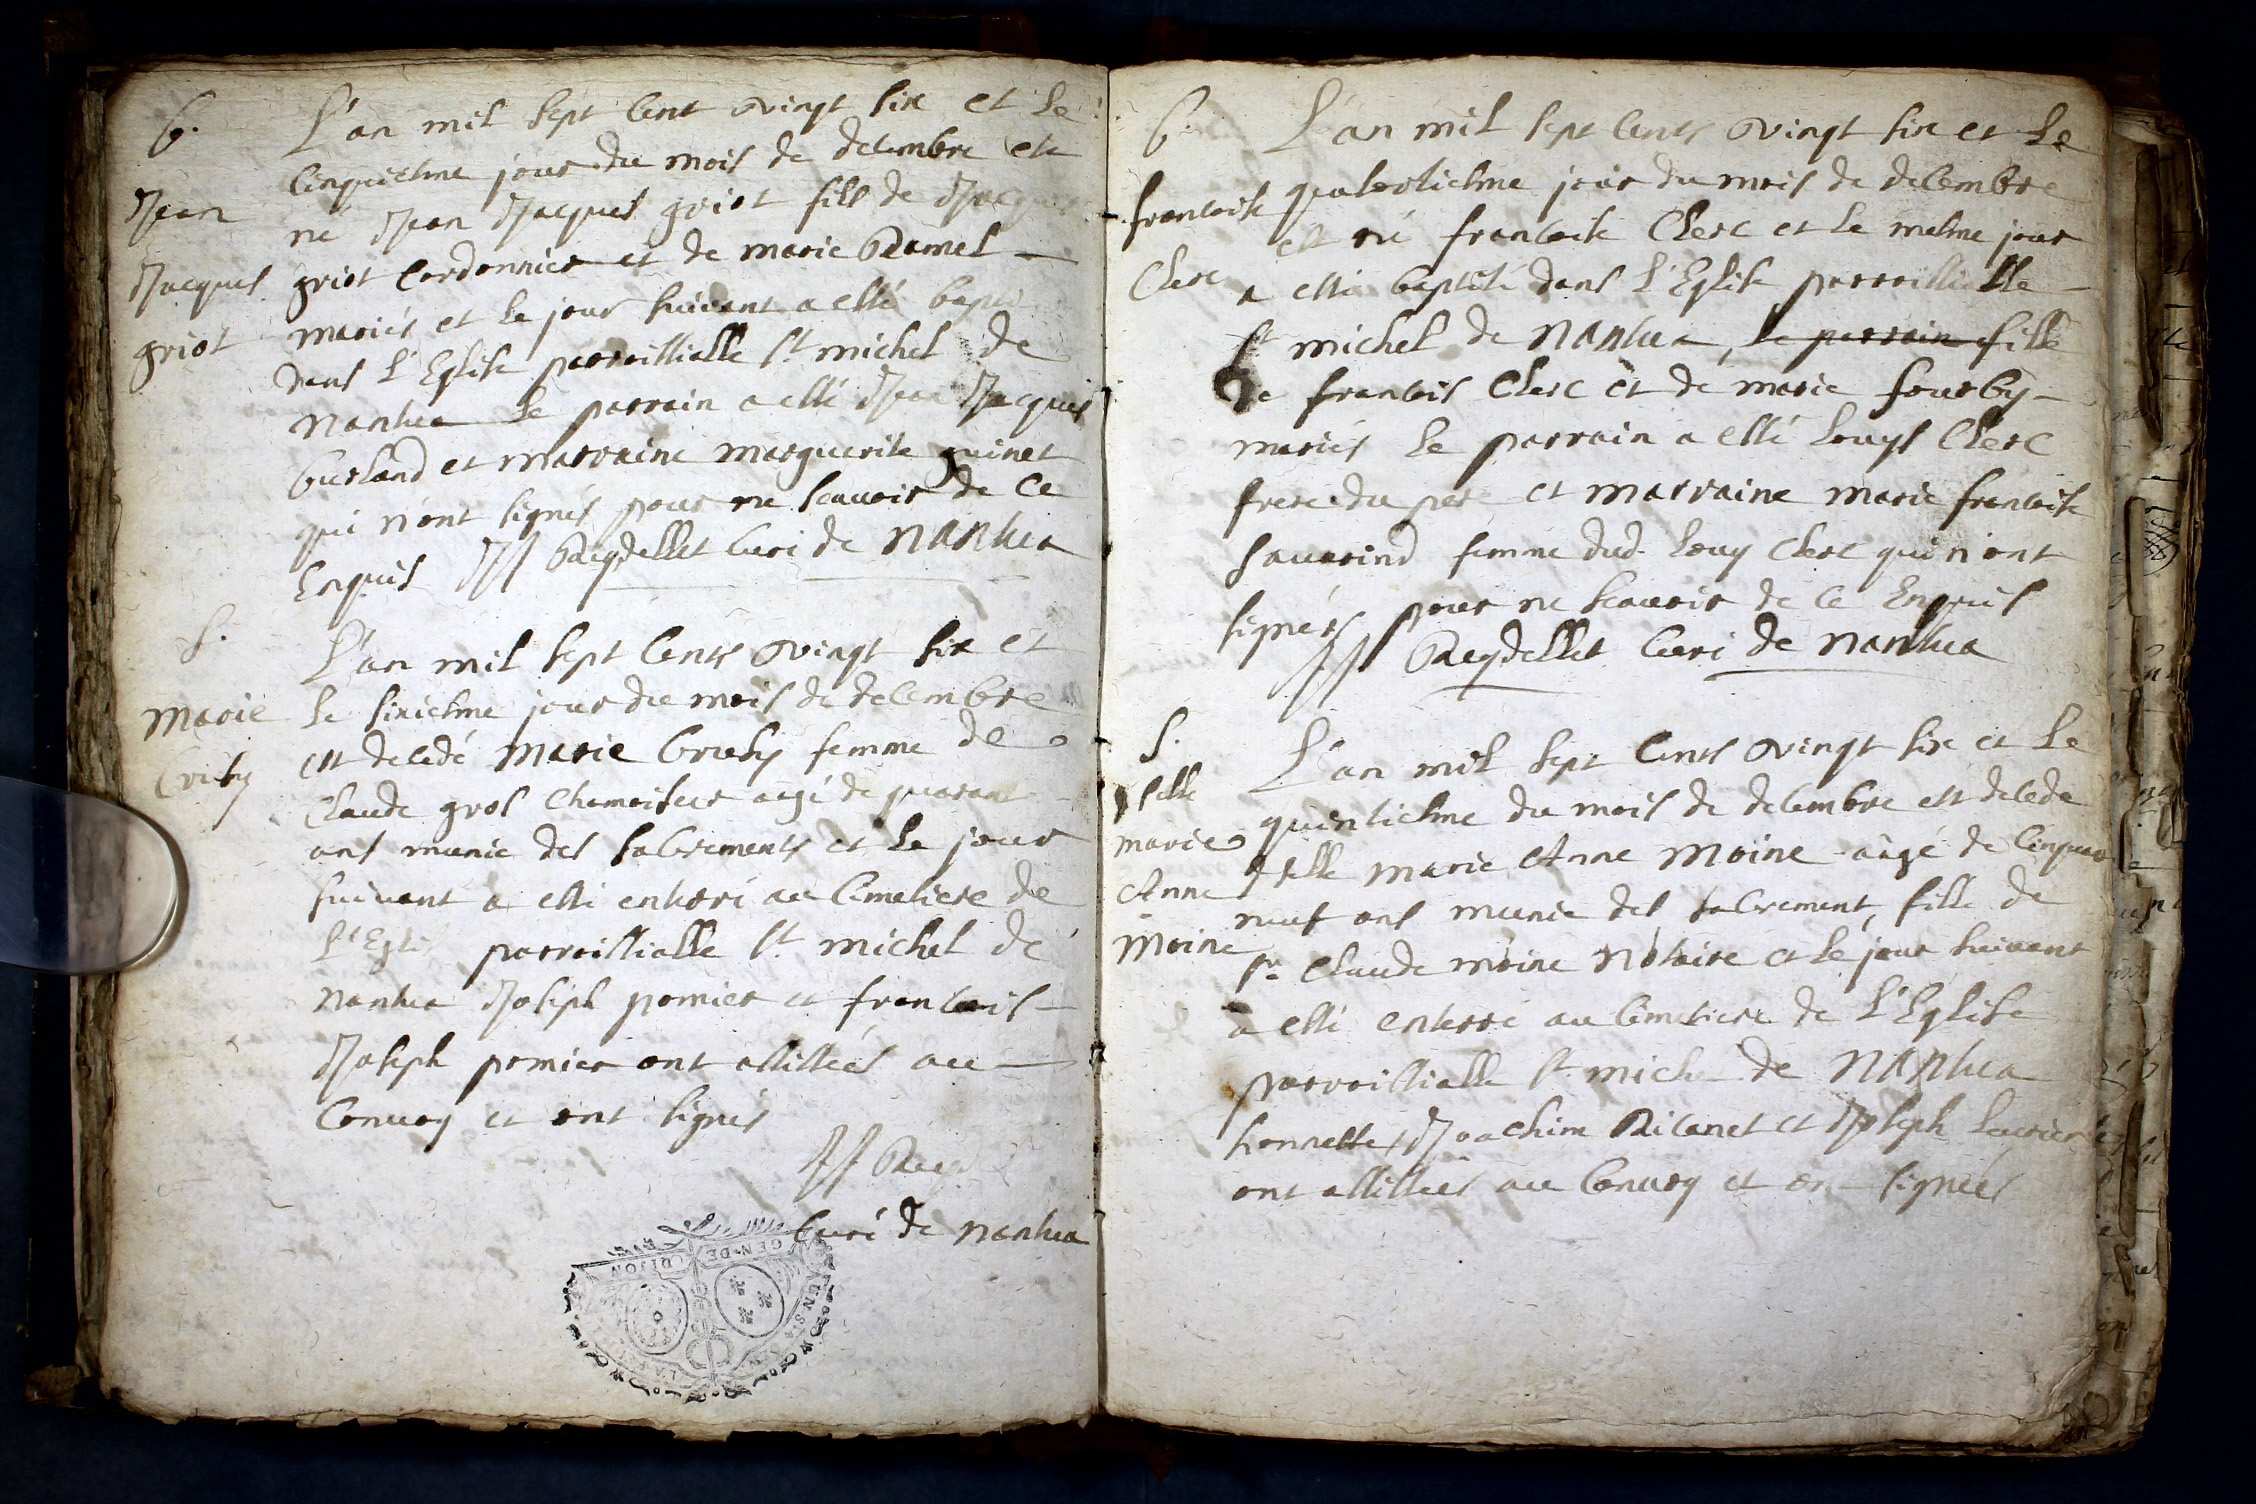 b.
Jean
Jacques
griot
L'an mil sept cent vingt six et le
cinquiesme jour du mois de decembre est
né Jean Jacques griot fils de Jacques
griot cordonnier et de marie
mariés et le jour suivant a esté
dans l'Eglise parroissialle st michel de
nantua le parrain a esté Jean Jacques
burland et marraine marguerite guinet
qui n'ont signés pour ne scavoir de ce
Enquis JJ Reydellet curé de nantua
S.
marie
L'an mil sept cents vingt six et
le sixiesme jour du mois de decembre
est decedé marie femme de
Claude gros chamoiseur aagé de quarant
ans munie des sacrements et le jour
suivant a esté enterré au cimetiere de
l'Eglis parroissialle st. michel de
nantua Joseph pomier et francois
Joseph pomier ont assistés au
convoy et ont signés
JJ Reyd
curé de nantua
GEN. DE
DIJON
b.
francoise
Clerc
L'an mil sept cents vingt six et le
quatorziesme jour du mois de decembre
est né francoise Clerc et le mesme jour
a esté baptisé dans l'Eglise parroissialle
st michel de nantua, le parrain fille
de francois Clerc et de marie fourby
mariés le parrain a esté Louys Clerc
frere du pere et marraine marie francoise
sauarind femme dud. Louy Clerc qui n'ont
signés pour ne scavoir de ce Enquis
JJ Reydellet curé de nantua
S.
dselle
marie
Anne
moine
L'an mil sept cents vingt six et le
quinziesme du mois de decembre est decede
dselle marie Anne moine aagé de cinquante
neuf ans munie des sacrement, fille de
sr Claude moine notaire et le jour suivant
a esté enterré au cimetiere de l'Eglise
parroissialle st. miche de nantua
honnettes Joachim Ricanet et Joseph
ont assistés au convoy et on signés